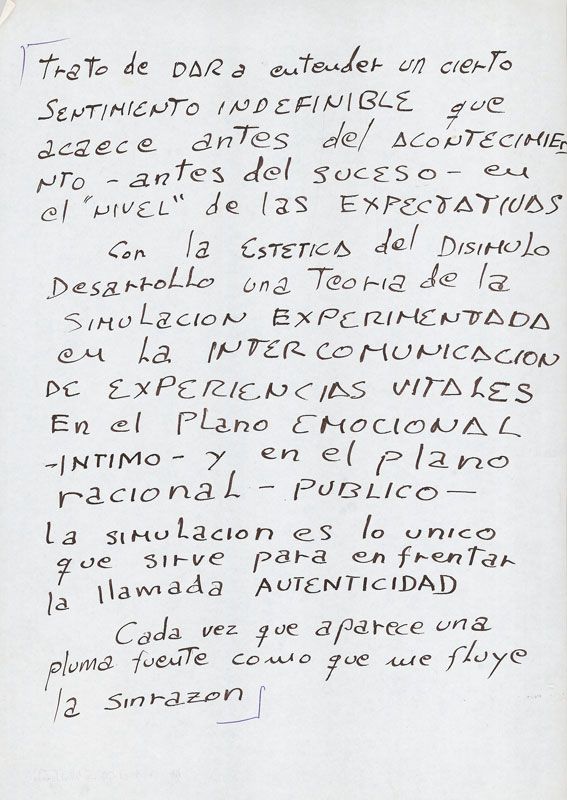 trato de DAR a entender un cierto
SENTIMIENTO INDEFINIBLE que
acaece antes del ACONTECIMIE
NTO - antes del SUCESO - en
el "NIVEL" de las EXPECTATIVAS
Con la ESTETICA del DISIMULO
Desarrollo una Teoria de la
SIMULACION EXPERIMENTADA
en la INTERCOMUNICACION
DE EXPERIENCIAS VITALES
En el Plano EMOCIONAL
-INTIMO- y en el plano
racional - PUBLICO -
La SIMULACION es lo unico
que sirve para enfrentar
la llamada AUTENTICIDAD
Cada vez que aparece una
pluma fuente como que me fluye
la sinrazon